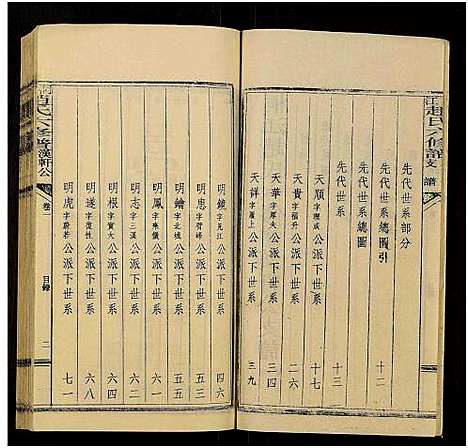 趙氏六修譜 支譜
先代世系部分
先代世系總圖引 十二
先代世系總圖
先代世系 十三
天順字理成公派下世系 十七
天貴字福升公派下世系 二四
天華字厚夫公派下世系 三四
天祥字履上公派下世系 三九
明鏡字見江公派下世系 四六
明思字習峰公派下世系 五三
明鑰字北城公派下世系 五五
明鳳字來儀公派下世系 五八
明志字三溪公派下世系 六一
明根字實夫公派下世系 六四
明遂字復性公派下世系 六八
明虎字蔚若公派下世系 七一
漢軒公
卷二
目錄
二